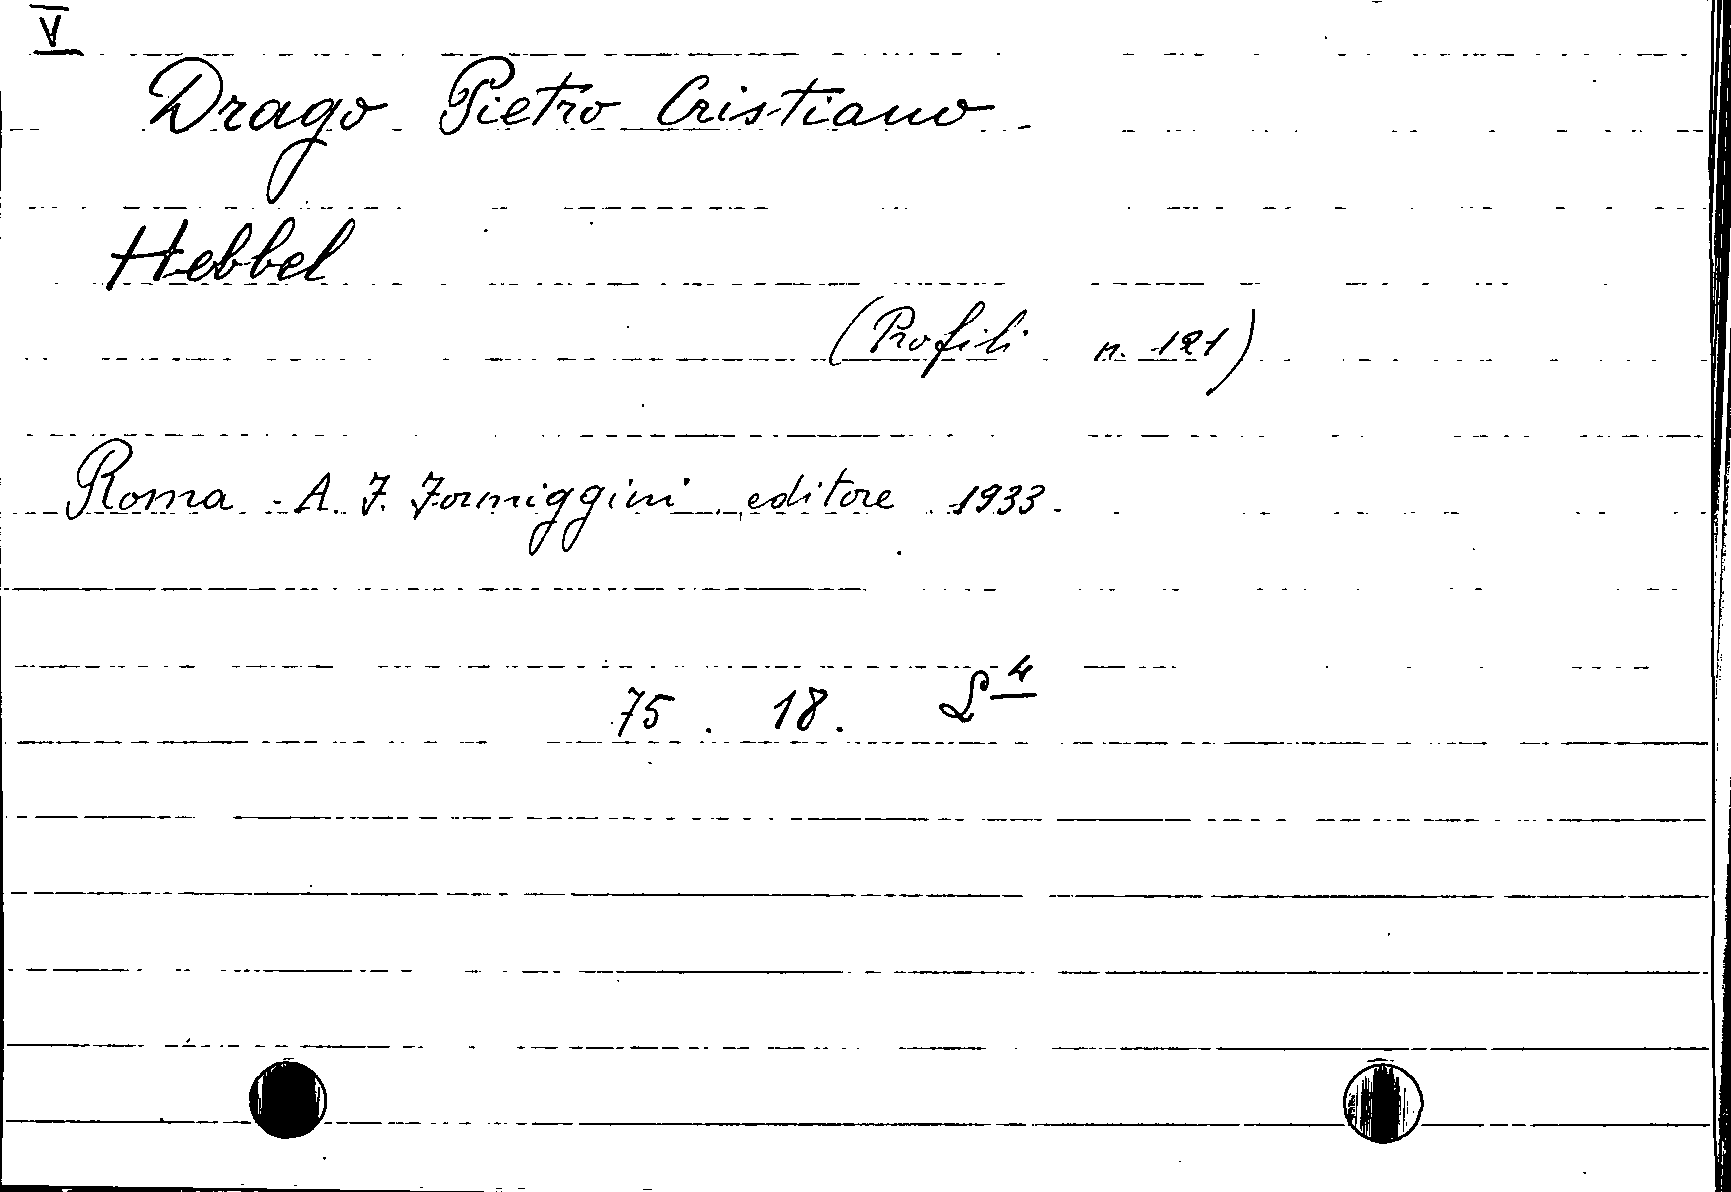 V
Drago Pietro Cristiano
Hebbel
(Profili n. 121)
Roma - A. F. Formiggini editore 1933.
75 . 18. L 4